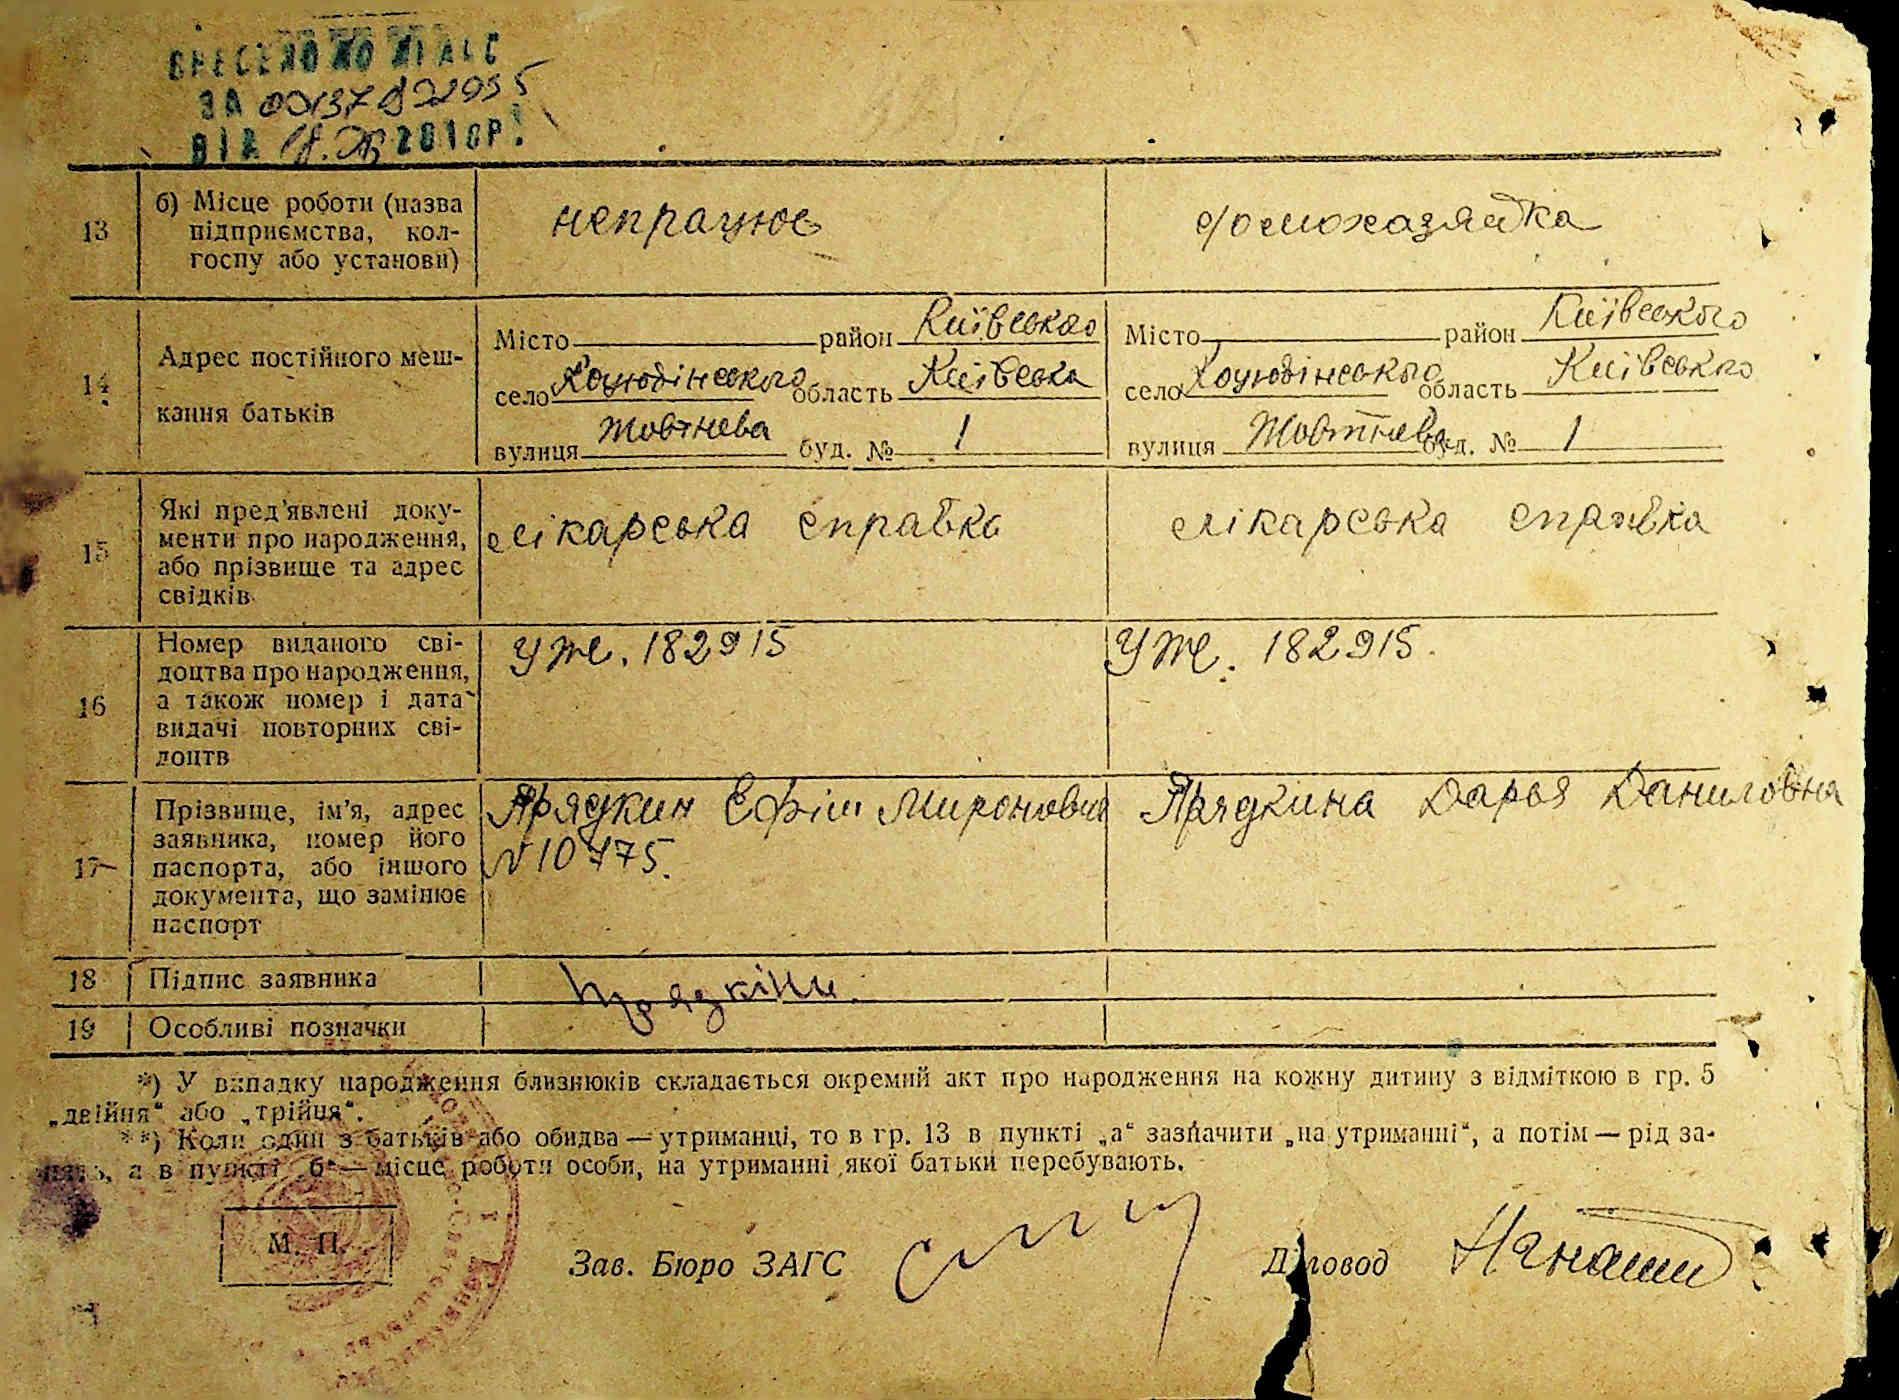 ВНЕСЕНО ДО ДРАЦС
ЗА 00137
ВІД 2010Р.
13
б) Місце роботи (назва
підприємства, кол-
госпу або установи)
непрацює
домохазяйка
14
Адрес постійного меш-
кання батьків
Місто район Київського
село Коцюбінського область Київська
вулиця Жовтнева буд. № 1
Місто район Київського
село Коцюбінського область Київсько
вулиця Жовтнева буд. № 1
15
Які пред'явлені доку-
менти про народження,
або прізвище та адрес
свідків
лікарська справка
лікарська справка
16
Номер виданого сві-
доцтва про народження,
а також номер і дата
видачі повторних сві-
доцтв
УЖ. 182915
УЖ. 182915.
17
Прізвище, ім'я, адрес
заявника, номер його
паспорта, або іншого
документа, що замінює
паспорт
Прядкин Ефім Миронович
№10775.
Прядкина Дарья Даниловна
18
Підпис заявника
19
Особливі позначки
*) У випадку народження близнюків складається окремий акт про народження на кожну дитину з відміткою в гр. 5
„двійня“ або „трійця“.
**) Коли один з батьків або обидва — утриманці, то в гр. 13 в пункті „а“ зазначити „на утриманні“, а потім — рід за-
нять, а в пункті „б“ — місце роботи особи, на утриманні якої батьки перебувають.
М. П.
Зав. Бюро ЗАГС
Діловод